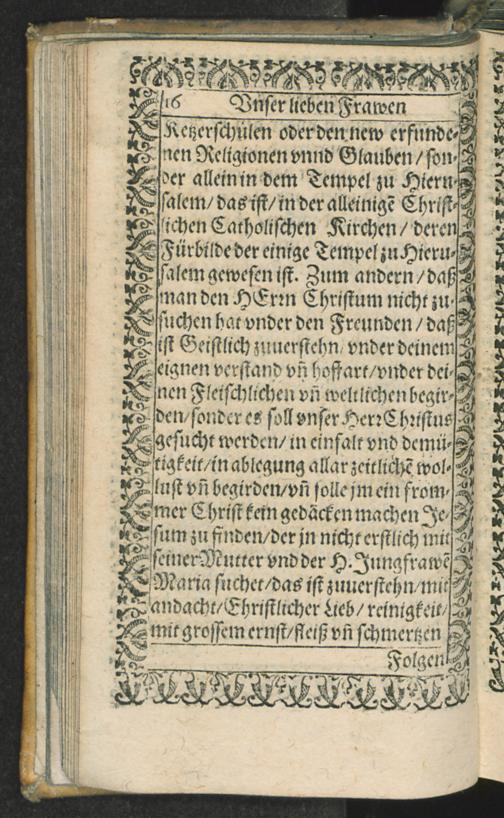 16 Vnser lieben Frawen
Ketzerschulen oder den new erfunde-
nen Religionen vnnd Glauben / son-
der allein in dem Tempel zu Hieru-
salem / das ist / in der alleinigē Christ-
lichen Catholischen Kirchen / deren
Fürbilde der einige Tempel zu Hieru-
salem gewesen ist. Zum andern / daß
man den HErrn Christum nicht zu-
suchen hat vnder den Freunden / daß
ist Geistlich zuuerstehn / vnder deinem
eignen verstand vñ hoffart / vnder dei-
nen Fleischlichen vñ weltlichen begir-
den / sonder es soll vnser Herr Christus
gesucht werden / in einfalt vnd demü-
tigkeit / in ablegung allar zeitlichē wol-
lust vñ begirden / vñ solle jm ein from-
mer Christ kein gedäcken machen Je-
sum zu finden / der jn nicht erstlich mit
seiner Mutter vnd der H. Jungfrawē
Maria suchet / das ist zuuerstehn / mit
andacht / Christlicher Lieb / reinigkeit /
mit grossem ernst / fleiß vñ schmertzen
Folgen